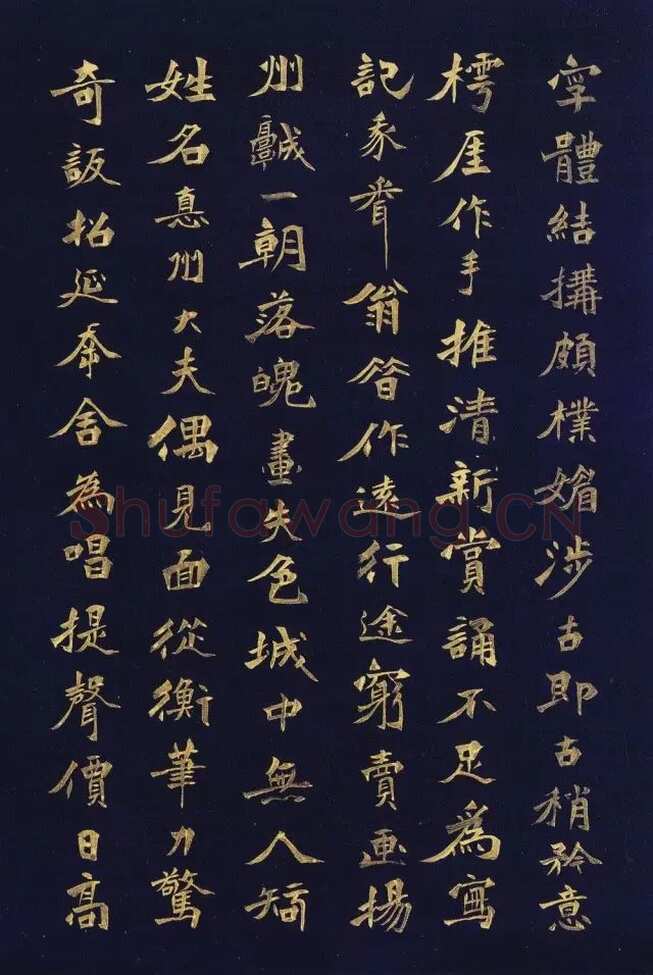 字體結搆頗樸媚涉古即古稍矜意
樗厓作手推清新賞誦不足為寫
記翁昔作遠行途窮賣画揚
州一朝落魄畫失色城中無人知
姓名惪州大夫偶見面從衡筆力驚
奇招延舍為唱提聲價日高
Shufawang.CN